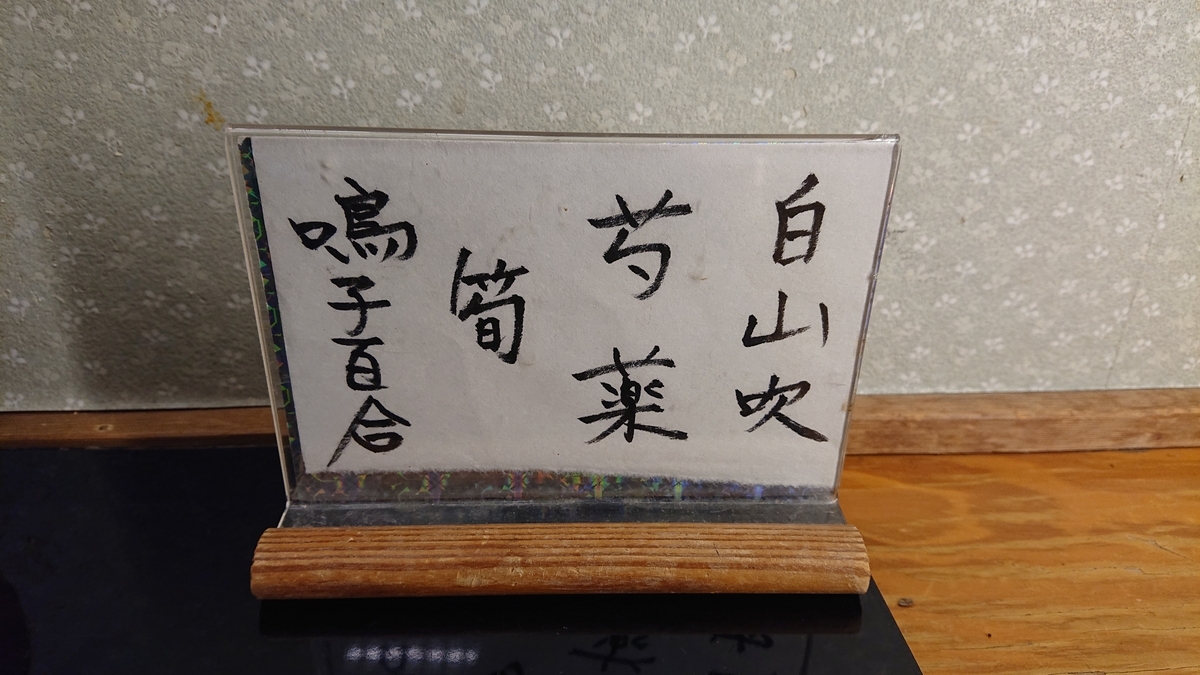 白山吹
芍薬
筍
鳴子百合